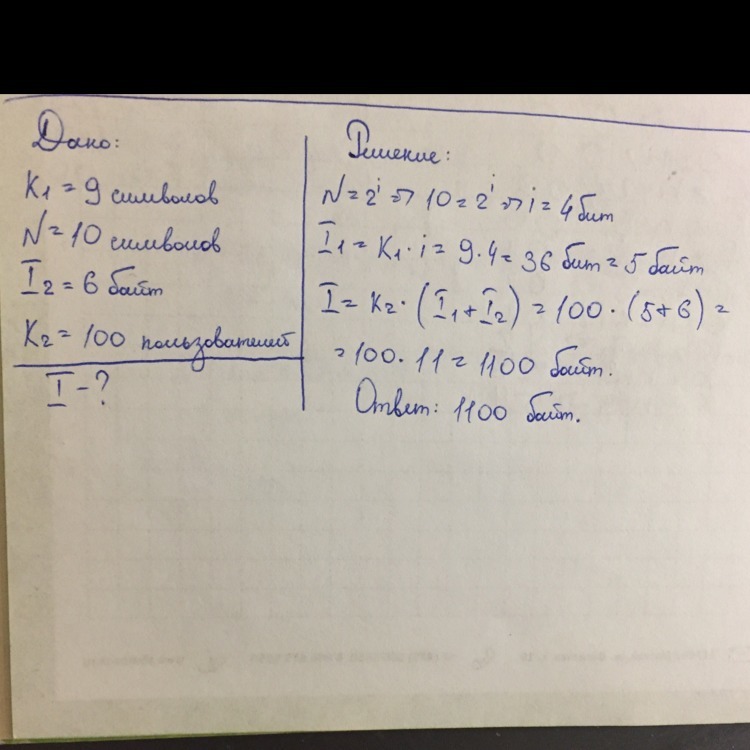 Дано:
K₁ = 9 символов
N = 10 символов
I₂ = 6 байт
K₂ = 100 пользователей
I - ?
Решение:
N = 2ⁱ => 10 = 2ⁱ => i = 4 бит
I₁ = K₁ · i = 9 · 4 = 36 бит = 5 байт
I = K₂ · (I₁ + I₂) = 100 · (5 + 6) =
= 100 · 11 = 1100 байт.
Ответ: 1100 байт.